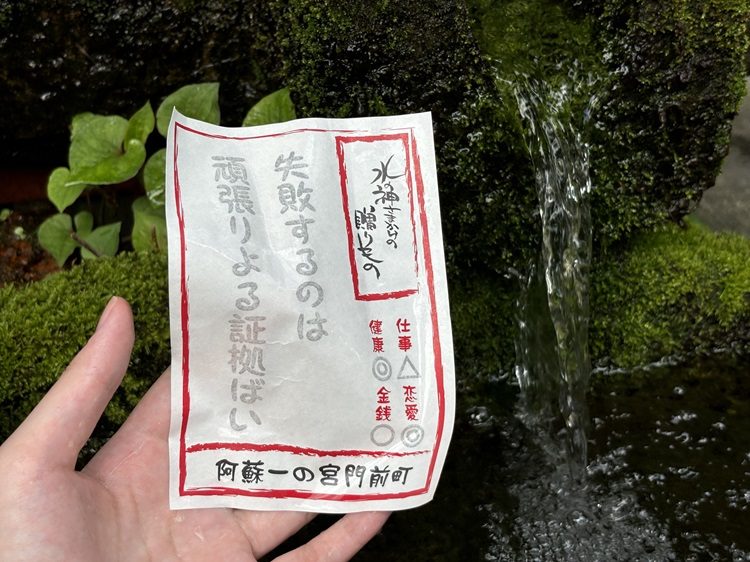 水の神さまからの
贈りもの
仕事△ 恋愛◎
健康◎ 金銭○
失敗するのは
頑張りよる証拠ばい
阿蘇一の宮門前町